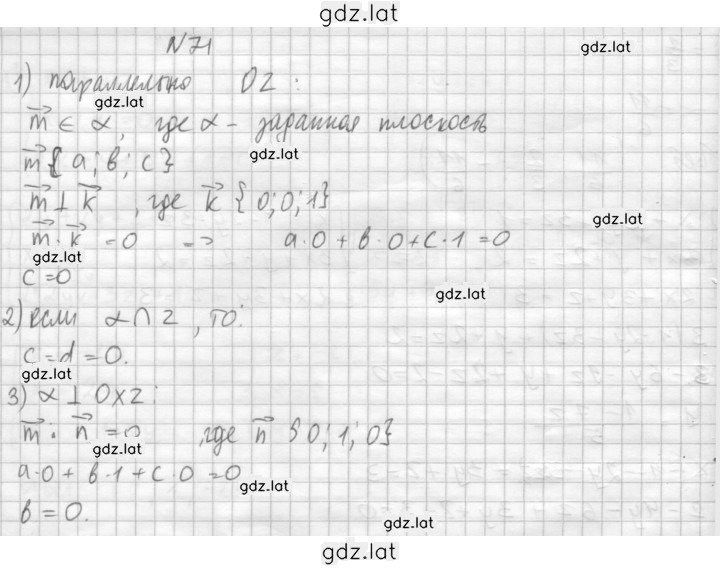 gdz.lat
N71
gdz.lat
1) параллельно OZ:
gdz.lat
m ∈ α, где α - заданная плоскость
m{a; b; c} gdz.lat
m ⊥ k, где k {0; 0; 1}
gdz.lat
m · k = 0 => a·0 + b·0 + c·1 = 0
gdz.lat
c = 0
gdz.lat
2) если α ∩ z, то:
c = d = 0.
gdz.lat
3) α ⊥ OXZ:
m · n = 0, где n {0; 1; 0}
gdz.lat
a·0 + b·1 + c·0 = 0
gdz.lat
b = 0.
gdz.lat
gdz.lat